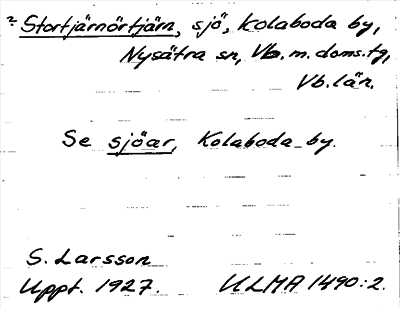 ? Stortjärnörtjärn, sjö, Kolaboda by,
Nysätra sn, Vb. m. doms.tg,
Vb. län.
Se sjöar, Kolaboda by.
S. Larsson
Uppt. 1927. ULMA 1490:2.